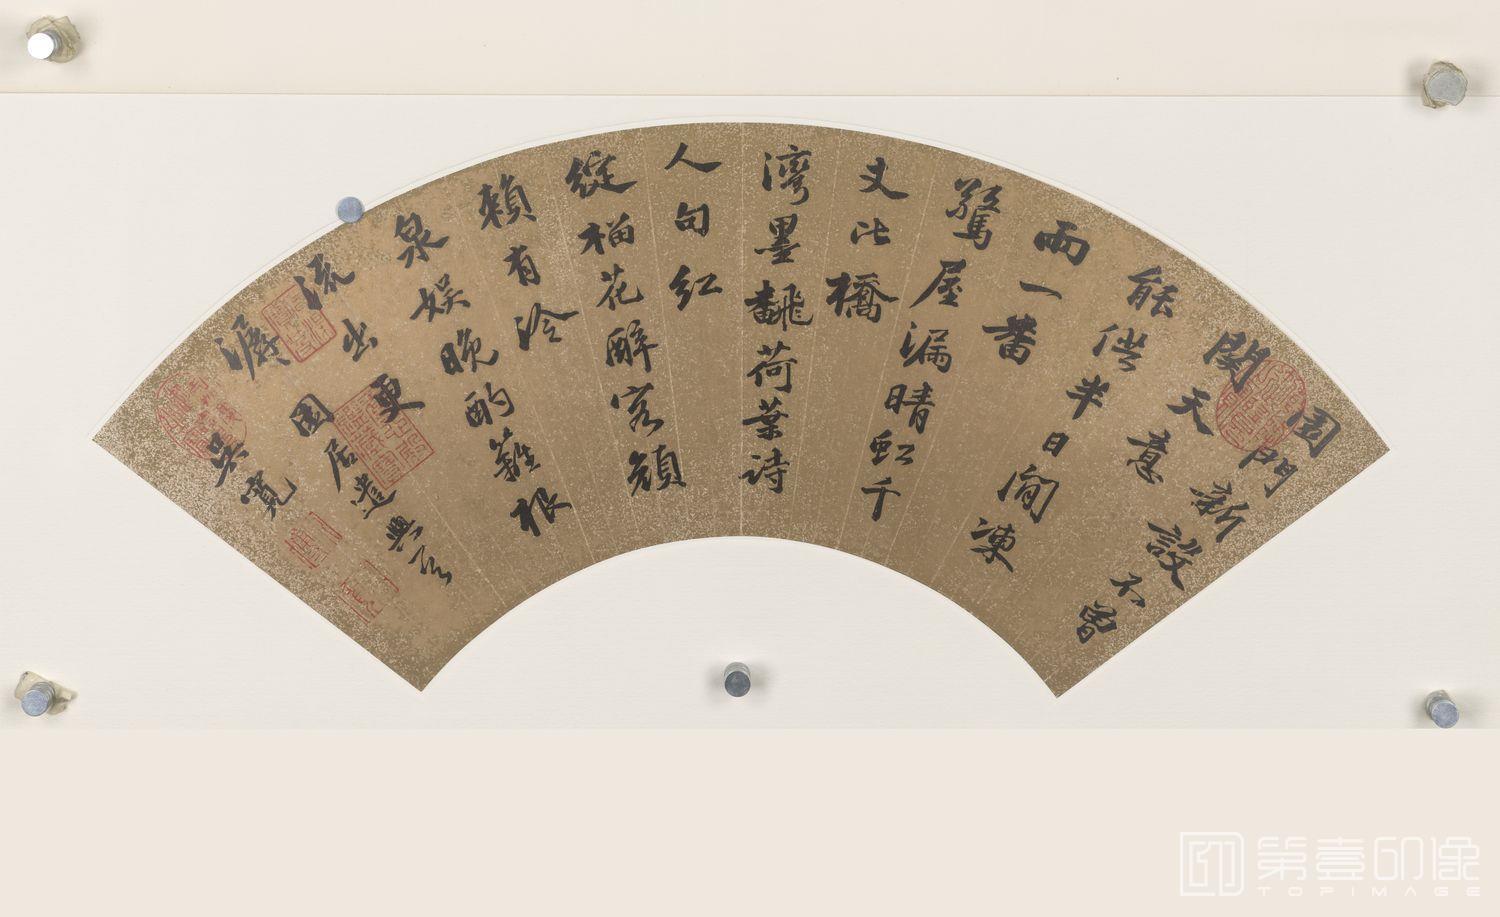 園門新設不曾
関天意
能供半日閒凍
雨一番
驚屋漏晴虹千
丈比橋
灣墨翻荷葉詩
人句紅
綻榴花醉客顏
賴有冷
泉娛晚酌蘿根
流出更
潺園居遣興
吳寬
第壹印像
TOPIMAGE